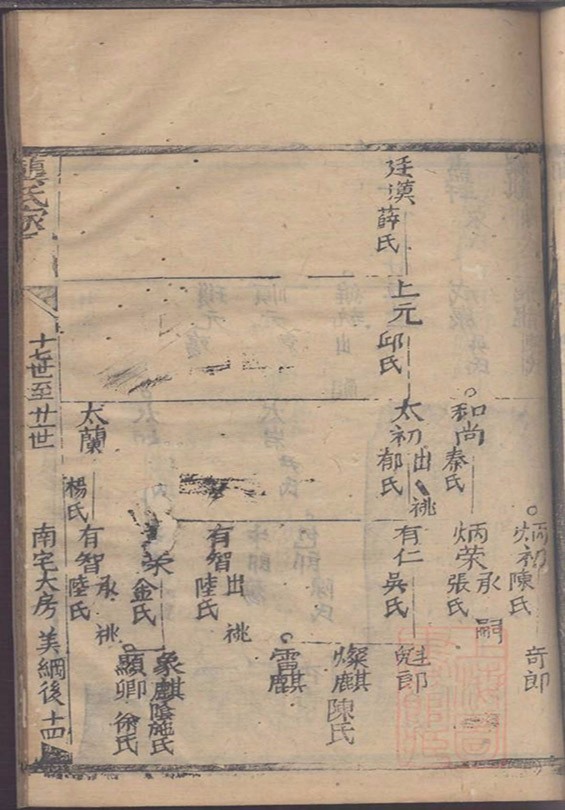 廷漢 薛氏
上元 邱氏
和尚 秦氏
太初 出祧 郁氏
太蘭 楊氏
炳初 陳氏
炳荣 承嗣 張氏
有仁 吳氏
有智 出祧 陸氏
荣 金氏
有智 承祧 陸氏
奇郎
魁郎
燦麒 陳氏
雷麒
象麒 陰施氏
顯卿 徐氏
氏家
十七世至廿世
南宅大房 美綱後 十四